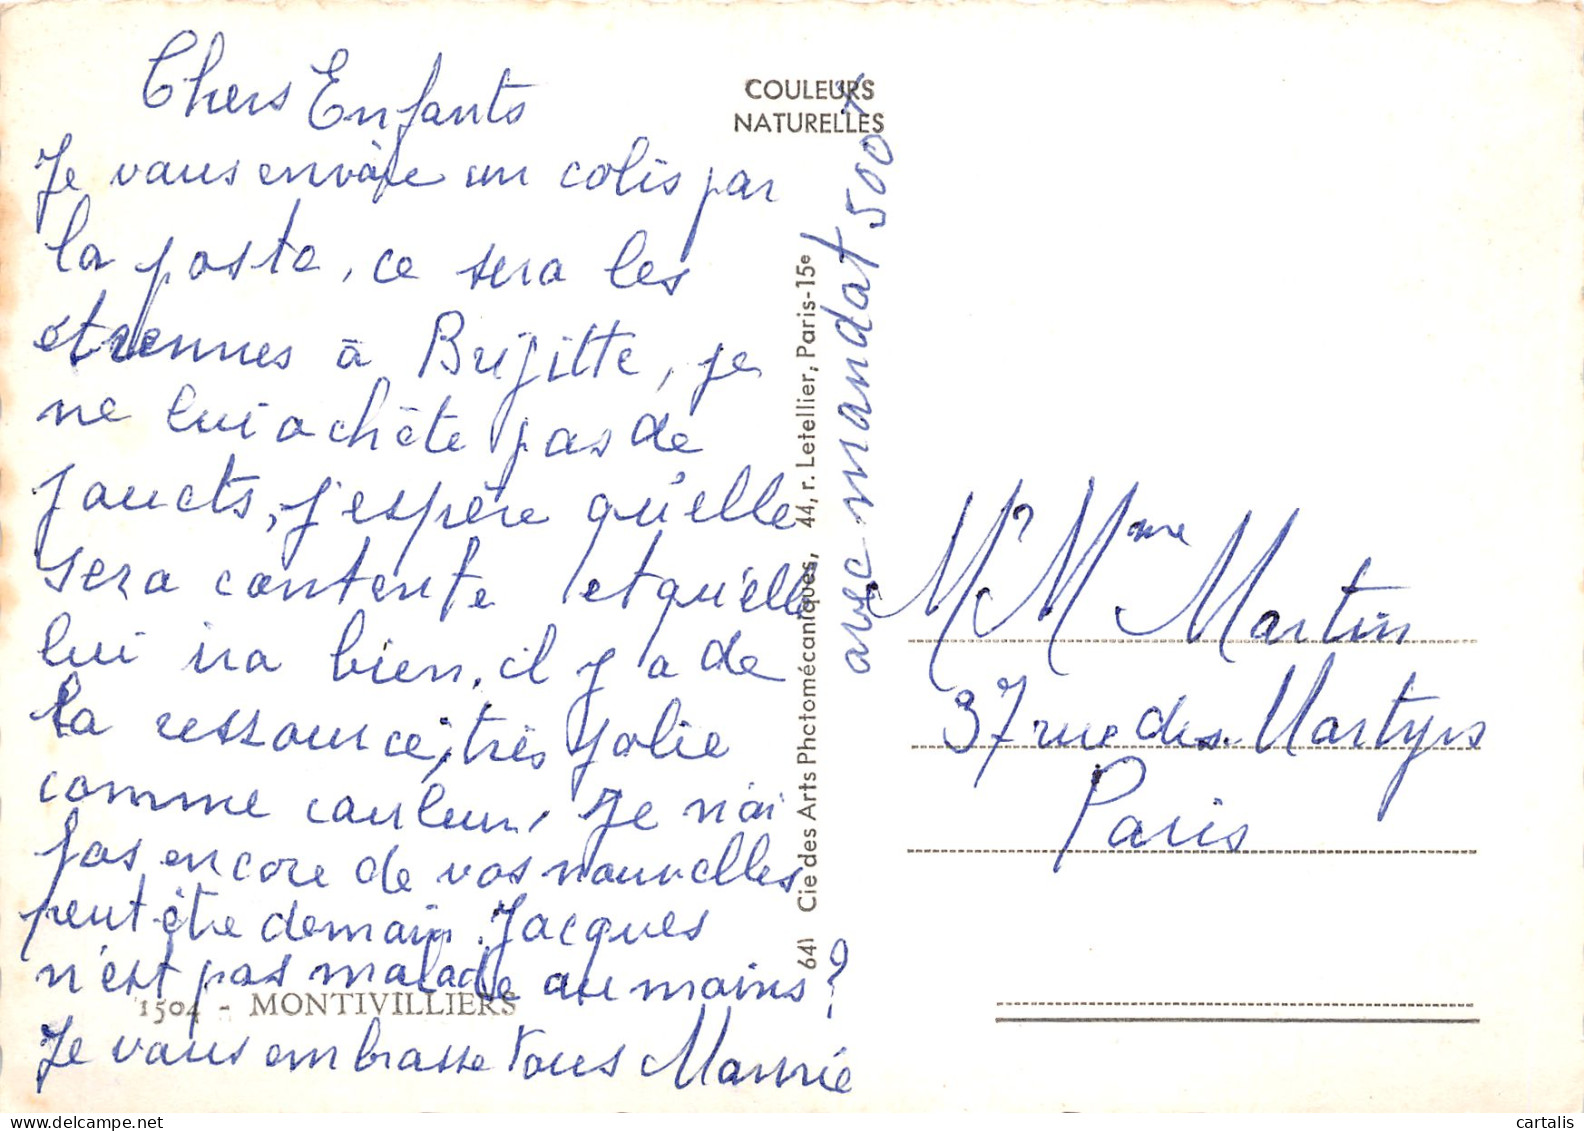 Chers Enfants
Je vous envoie un colis par
la poste, ce sera les
étrennes à Brigitte, je
ne lui achète pas de
jouets, j'espère qu'elle
sera contente et qu'elle
lui ira bien, il y a de
la ressource, très jolie
comme couleur, Je n'ai
pas encore de vos nouvelles
peut-être demain. Jacques
n'est pas malade au moins?
1504 - MONTIVILLIERS
Je vous embrasse tous Mamie
COULEURS
NATURELLES
641 Cie des Arts Photomécaniques, 44, r. Letellier, Paris-15e
avec mandat 500
Mr Mme Martin
37 rue des Martyrs
Paris
cartalis